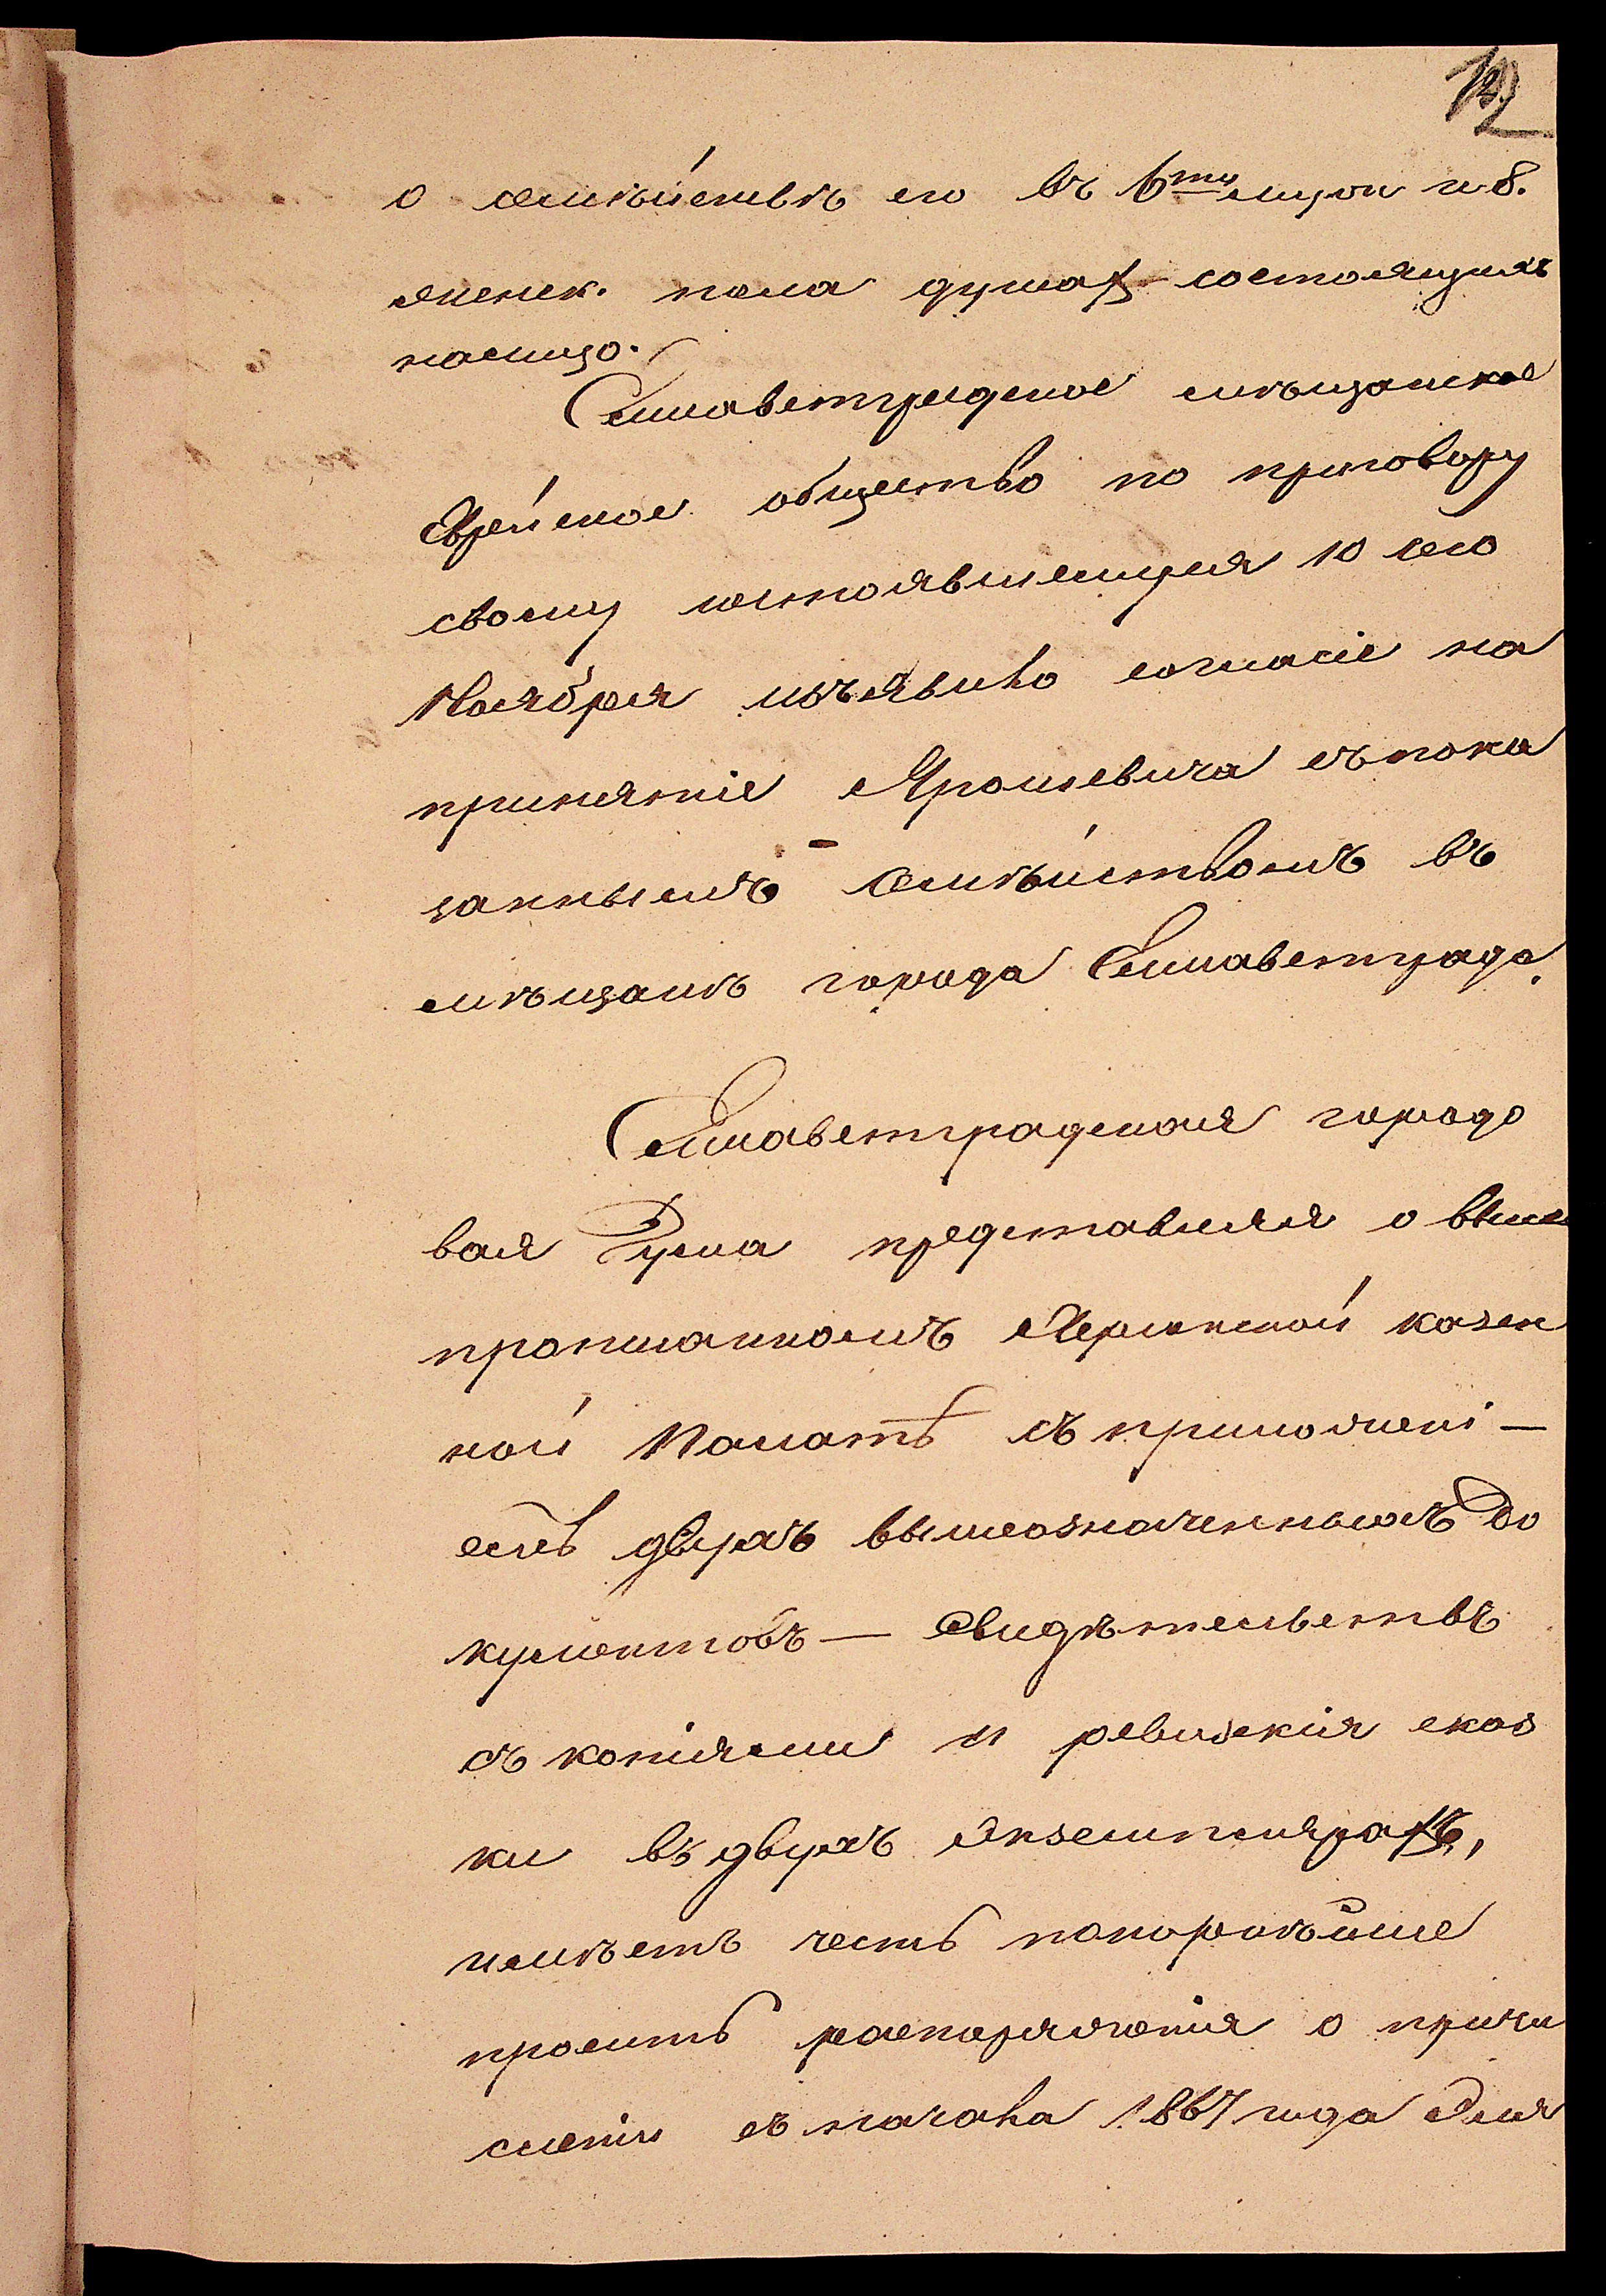 12
о семѣйствѣ его въ 6ти муж. и 8.
женск. пола душах состоящихъ
налицо.
Елисаветградское мѣщанское
Еврейское общество по приговору
своему состоявшемуся 10 сего
Ноября изъявило согласіе на
принятіе Ярошевича съ пока
заннымъ семѣйствомъ въ
мѣщане города Елисаветграда.
Елисаветградская городо
вая Дума представляя о выше
прописанномъ Херсонской казен
ной Палатѣ съ приложені –
емъ двухъ вышеозначенныхъ до
кументовъ – свидѣтельствъ
съ копіями и ревизскія сказ
ки въ двухъ экземплярахъ,
имѣетъ честь покорнѣйше
просить распоряженія о причи
сленіи съ начала 1867 года для